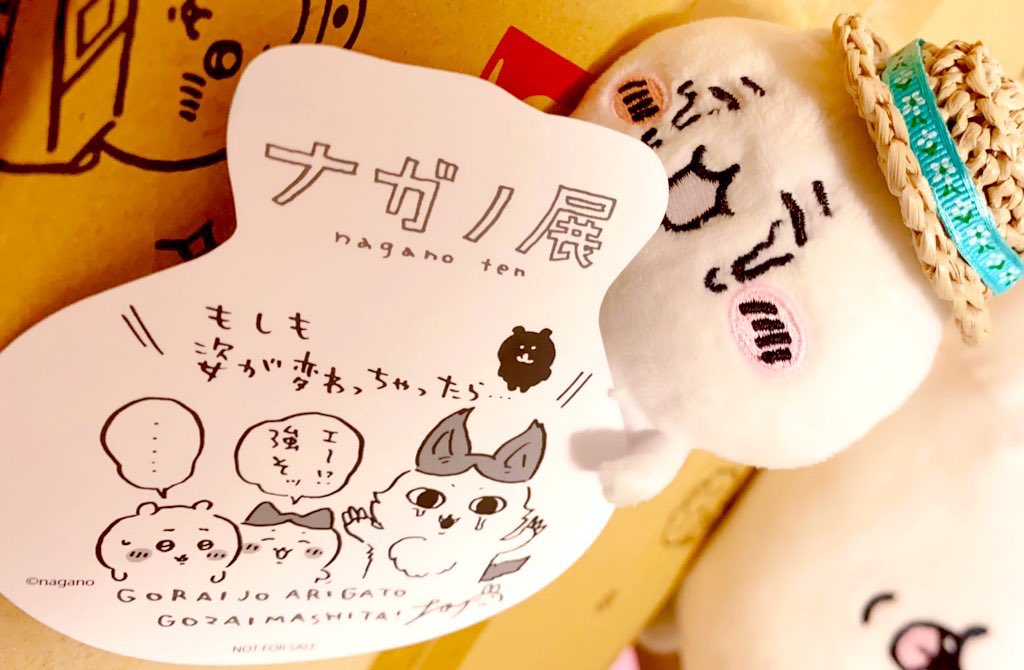 ナガノ展
nagano ten
もしも
姿が変わっちゃったら…
……
エーッ!?
強そッ
©nagano
GORAIJO ARIGATO
GOZAIMASHITA!
NOT FOR SALE